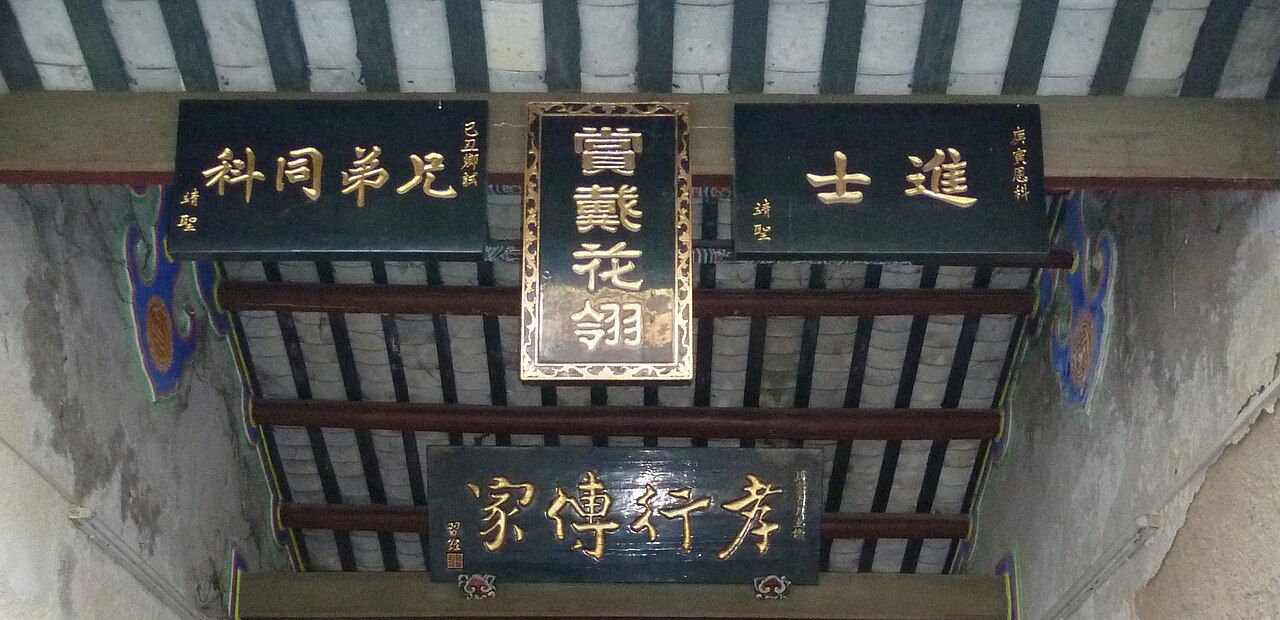 庚寅恩科
進士
靖聖
賞戴花翎
己丑鄉試
兄弟同科
靖聖
孝行傳家
習經